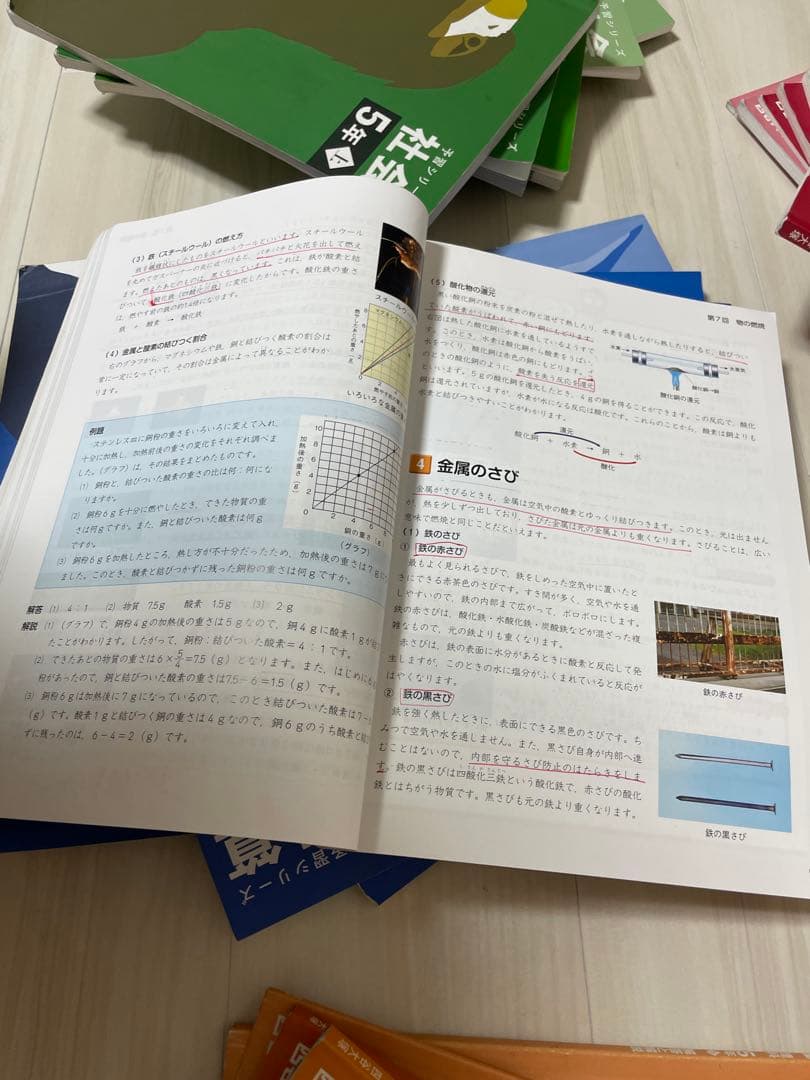 予習シリーズ
社会
5年 上
(3) 鉄（スチールウール）の燃え方
鉄を繊維状にしたものをスチールウールといいます。スチールウール
を丸めてガスバーナーの炎に近づけると、パチパチと火花を出して燃え
ます。燃えたあとのものは、黒くなっています。これは、鉄が酸素と結
びついて、酸化鉄「四酸化三鉄」に変化したからです。酸化鉄の重さ
は、燃やす前の鉄の約1.4倍になります。
鉄 + 酸素 → 酸化鉄
(4) 金属と酸素の結びつく割合
右のグラフから、マグネシウムや鉄、銅と結びつく酸素の割合は
常に一定になっていて、その割合は金属によって異なることがわか
ります。
例題
ステンレス皿に銅粉の重さをいろいろに変えて入れ、
十分に加熱し、加熱前後の重さの変化をそれぞれ調べま
した。（グラフ）は、その結果をまとめたものです。
(1) 銅粉と、結びついた酸素の重さの比は何：何にな
りますか。
(2) 銅粉6gを十分に燃やしたとき、できた物質の重
さは何gですか。また、銅と結びついた酸素は何g
ですか。
(3) 銅粉6gを加熱したところ、熱し方が不十分だったため、加熱後の重さは7gに
ました。このとき、酸素と結びつかずに残った銅粉の重さは何gですか。
加熱後の重さ（g）
10
8
6
4
2
0
銅の重さ（g）
（グラフ）
解答 (1) 4：1 (2) 物質 7.5g 酸素 1.5g (3) 2g
解説 (1)（グラフ）で、銅粉4gの加熱後の重さは5gなので、銅4gに酸素1gが結
たことがわかります。したがって、銅粉：結びついた酸素＝4：1です。
(2) できたあとの物質の重さは6×5/4＝7.5（g）となります。また、はじめに6g
粉があったので、銅と結びついた酸素の重さは7.5－6＝1.5（g）です。
(3) 銅粉6gは加熱後に7gになっているので、このとき結びついた酸素は7－
（g）です。酸素1gと結びつく銅の重さは4gなので、銅6gのうち酸素と結
ずに残ったのは、6－4＝2（g）です。
スチールウール
燃やしたあとの重さ（g）
マグネシウム
燃やす前の重さ
いろいろな金属の
第7回 物の燃焼
(5) 酸化物の還元
黒い酸化銅の粉末を炭素の粉と混ぜて熱したり、水素を通しながら熱したりすると、結びつい
ていた酸素がうばわれて、赤い銅にもどります。
右図は熱した酸化銅に水素を通しているようすで
す。このとき、水素は酸化銅から酸素をうばい、
水をつくり、酸化銅は赤色の銅にもどります。
のときの酸化銅のように、酸素を失う反応を還元
といいます。5gの酸化銅を還元したとき、4gの銅を得ることができます。この反応で、酸化
銅は還元されていますが、水素が水になる反応は酸化です。これらのことから、酸素は銅よりも
水素と結びつきやすいことがわかります。
水素
水蒸気
酸化銅→銅
酸化銅の還元
還元
酸化銅 + 水素 → 銅 + 水
酸化
4 金属のさび
金属がさびるときも、金属は空気中の酸素とゆっくり結びつきます。このとき、光は出ません
が、熱を少しずつ出しており、さびた金属は元の金属よりも重くなります。さびることは、広い
意味で燃焼と同じことだといえます。
(1) 鉄のさび
① 鉄の赤さび
最もよく見られるさびで、鉄をしめった空気中に置いたと
きにできる赤茶色のさびです。すき間が多く、空気や水を通
しやすいので、鉄の内部まで広がって、ボロボロにします。
鉄の赤さびは、酸化鉄・水酸化鉄・炭酸鉄などが混ざった複
雑なもので、元の鉄よりも重くなります。
赤さびは、鉄の表面に水分があるときに酸素と反応して発
生しますが、このときの水に塩分がふくまれていると反応が
はやくなります。
鉄の赤さび
② 鉄の黒さび
鉄を強く熱したときに、表面にできる黒色のさびです。ち
みつで空気や水を通しません。また、黒さび自身が内部へ進
むことはないので、内部を守るさび防止のはたらきをしま
す。鉄の黒さびは四酸化三鉄という酸化鉄で、赤さびの酸化
鉄とはちがう物質です。黒さびも元の鉄より重くなります。
鉄の黒さび
予習シリーズ
四谷大塚